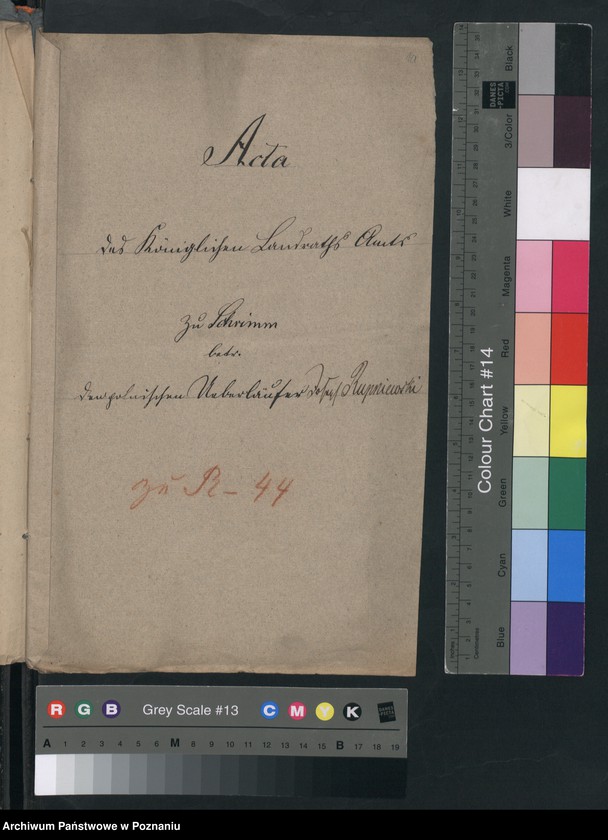 Acta
des Königlichen Landraths Amts
zu Schrimm
betr.
den polnischen Ueberläufer Josef Rupniewski
zu R - 44
Black
3/Color
White
Magenta
Red
Yellow
Green
Cyan
Blue
Colour Chart #14
DANES
PICTA
.COM
Inches
Centimetres
R G B Grey Scale #13 C M Y K
A 1 2 3 4 5 6 M 8 9 10 11 12 13 14 15 B 17 18 19
Archiwum Państwowe w Poznaniu